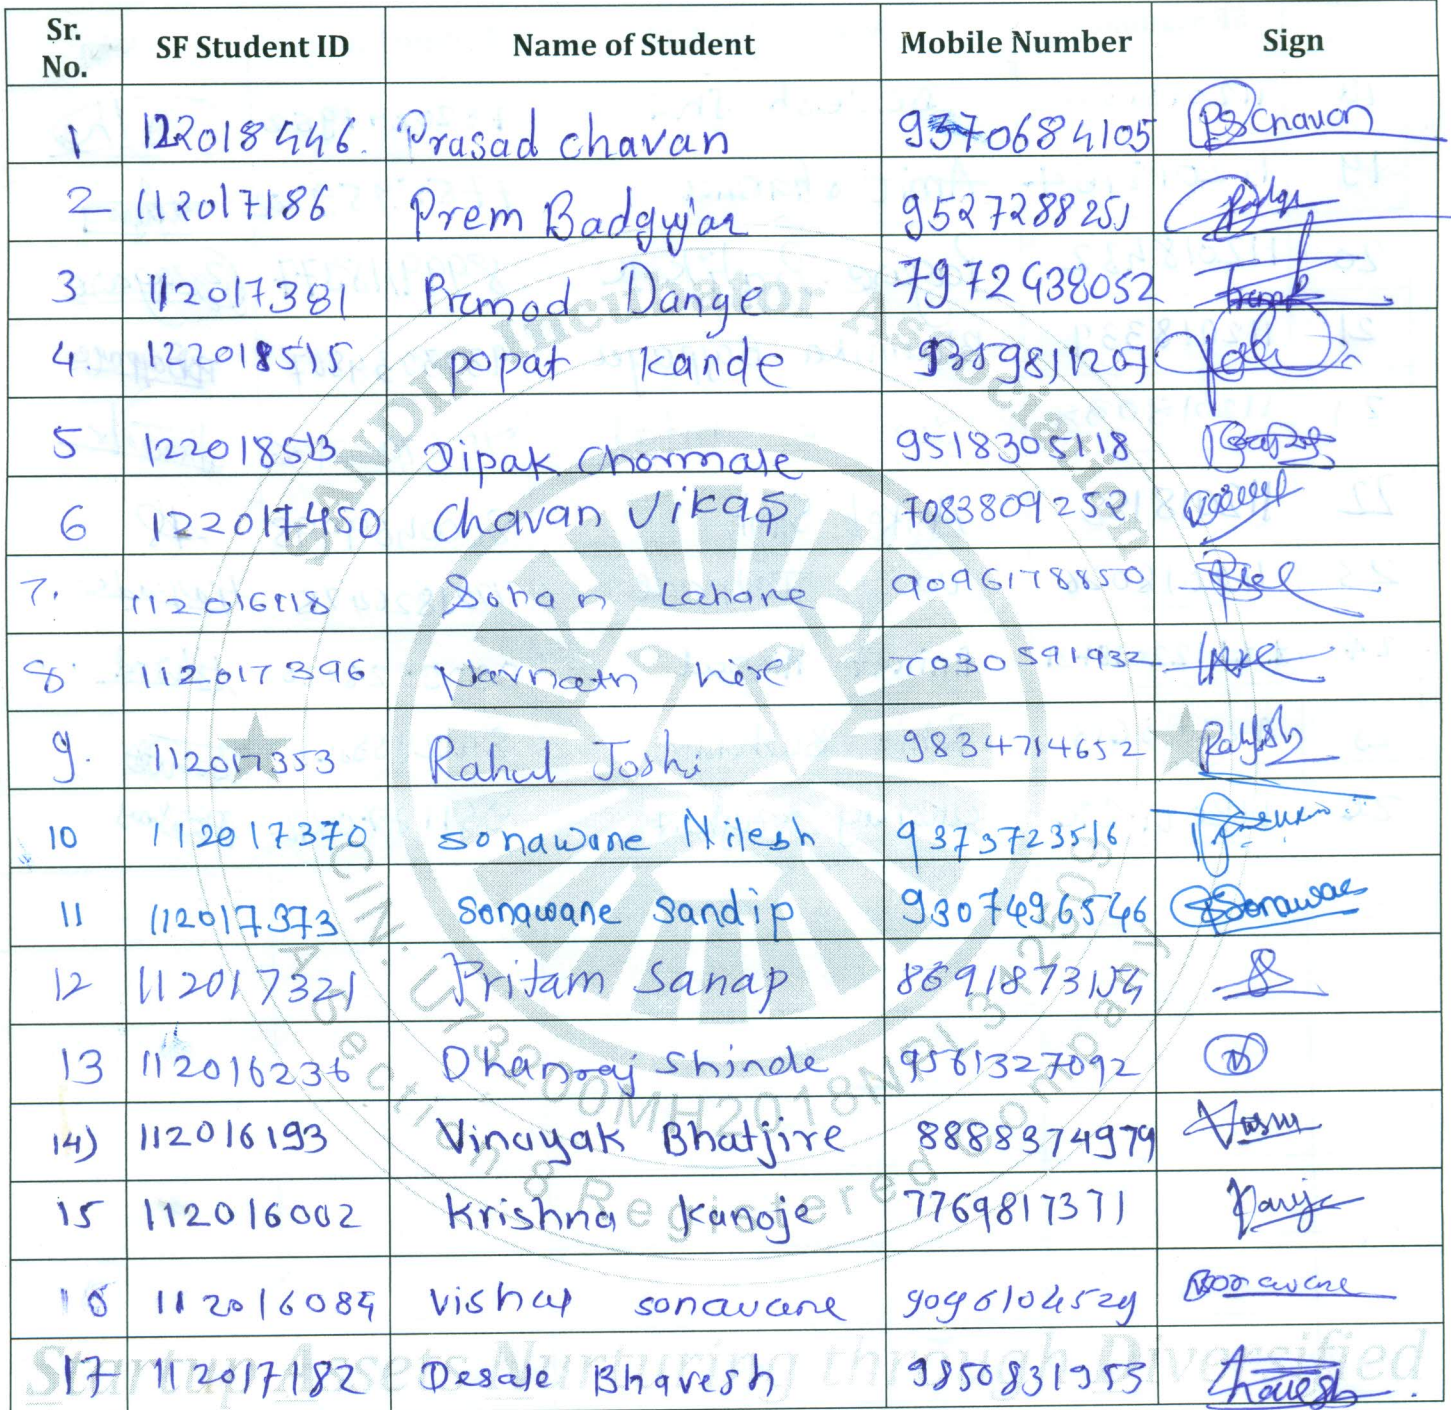 Sr. No. SF Student ID Name of Student Mobile Number Sign
1 122018446. Prasad chavan 9370684105 PSChavan
2 112017186 Prem Badgujar 9527288251
3 112017381 Pramod Dange 7972638052
4. 122018515 popat kande 9359811207
5 122018513 Dipak Chormale 9518305118
6 122017450 Chavan Vikas 7083809252
7. 112016118 Sohan Lahane 9096178850
8 112017396 Navnath hire 7030591932
9. 112017353 Rahul Joshi 9834714652
10 112017370 sonawane Nilesh 9373723516
11 112017373 Sonawane Sandip 9307496546 Sonawane
12 112017321 Pritam Sanap 8691873154
13 112016236 Dhanraj Shinde 9561327092
14) 112016193 Vinayak Bhatjire 8888374979
15 112016002 Krishna Kanoje 7769817371
16 112016084 vishal sonavane 9096104529 Sonavane
17 112017182 Desale Bhavesh 9850831953 Bhavesh
SANDIP Incubator Association
CIN: U73200MH2018NPL312509
A Section 8 Registered Company
Startup Assets Nurturing through Diversified